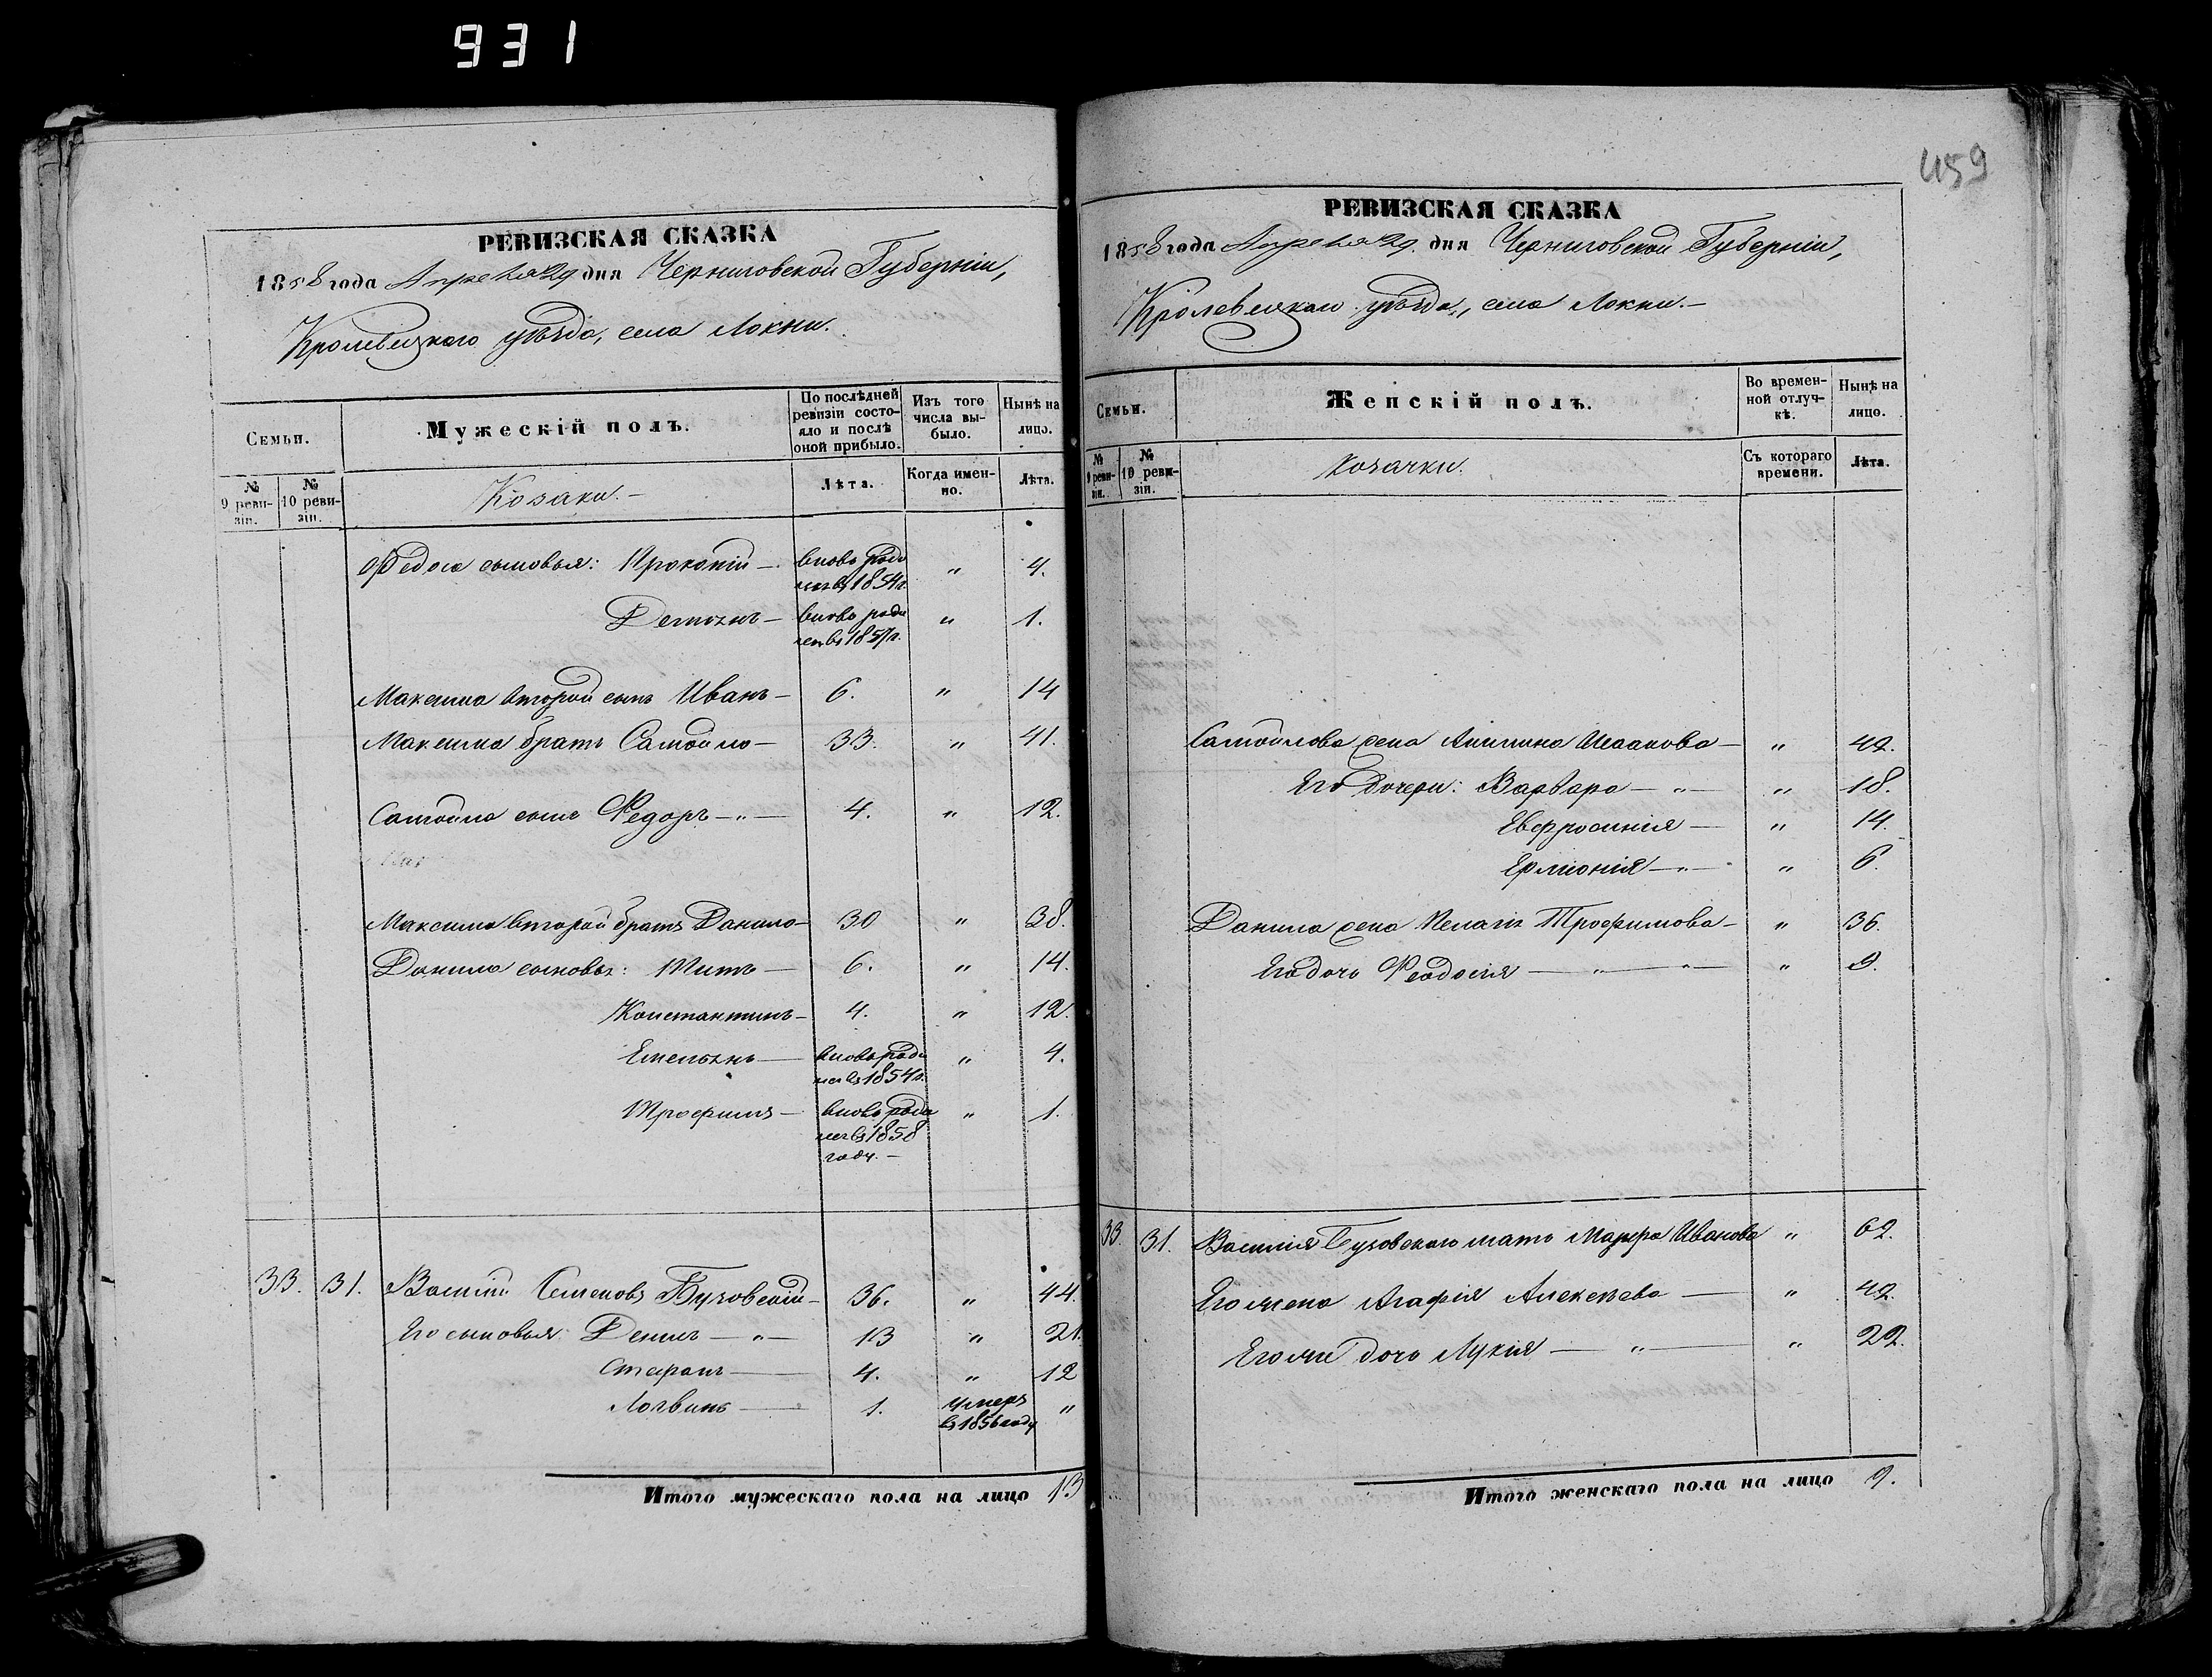 931
РЕВИЗСКАЯ СКАЗКА
1858 года Апреля 29 дня Черниговской Губерніи,
Кролевецкаго уѣзда, села Локни.
Семьи.
Мужескій полъ.
По послѣдней ревизіи состояло и послѣ оной прибыло.
Изъ того числа выбыло.
Нынѣ на лицо.
№ 9 ревизіи.
№ 10 ревизіи.
Козаки.—
Лѣта.
Когда именно.
Лѣта.
Федоса сыновья: Прокопій — вновь роди " 4.
лся въ 1854 г.
Демьянъ — вновь роди " 1.
лся въ 1857 г.
Максима второй сынъ Иванъ — 6. " 14
Максима братъ Самойло — 33. " 41.
Самойла сынъ Федоръ — " — 4. " 12.
Максима второй братъ Данило — 30 " 38.
Данила сыновья: Титъ — 6. " 14.
Константинъ — 4. " 12.
Емельянъ — вновь роди " 4.
лся въ 1854 г.
Трофимъ — вновь роди " 1.
лся въ 1858
году. —
33. 31. Василій Семеновъ Бузовскій — 36. " 44.
Его сыновья: Денисъ — " — 13 " 21.
Стефанъ — 4. " 12
Логвинъ — 1. умеръ "
въ 1856 году
Итого мужескаго пола на лицо 13
459
РЕВИЗСКАЯ СКАЗКА
1858 года Апреля 29. дня Черниговской Губерніи,
Кролевецкаго уѣзда, села Локни.—
Семьи.
Женскій полъ.
Во временной отлучкѣ.
Нынѣ на лицо.
№ 9 ревизіи.
№ 10 ревизіи.
Козачки.
Съ котораго времени.
Лѣта.
Самойлова жена Акилина — " 42.
Его дочери: Варвара — " — " 18.
Евфросинія — " 14.
Ермионія — " — " 6.
Данила жена Пелагія Трофимова — " 36.
Его дочь Феодосія — " — " — " 9.
33. 31. Василія Бузовскаго мать Марфа Иванова " 62.
Его жена Агафія Алексѣева — " 42.
Его же дочь Лукія — " — " 22.
Итого женскаго пола на лицо 9.